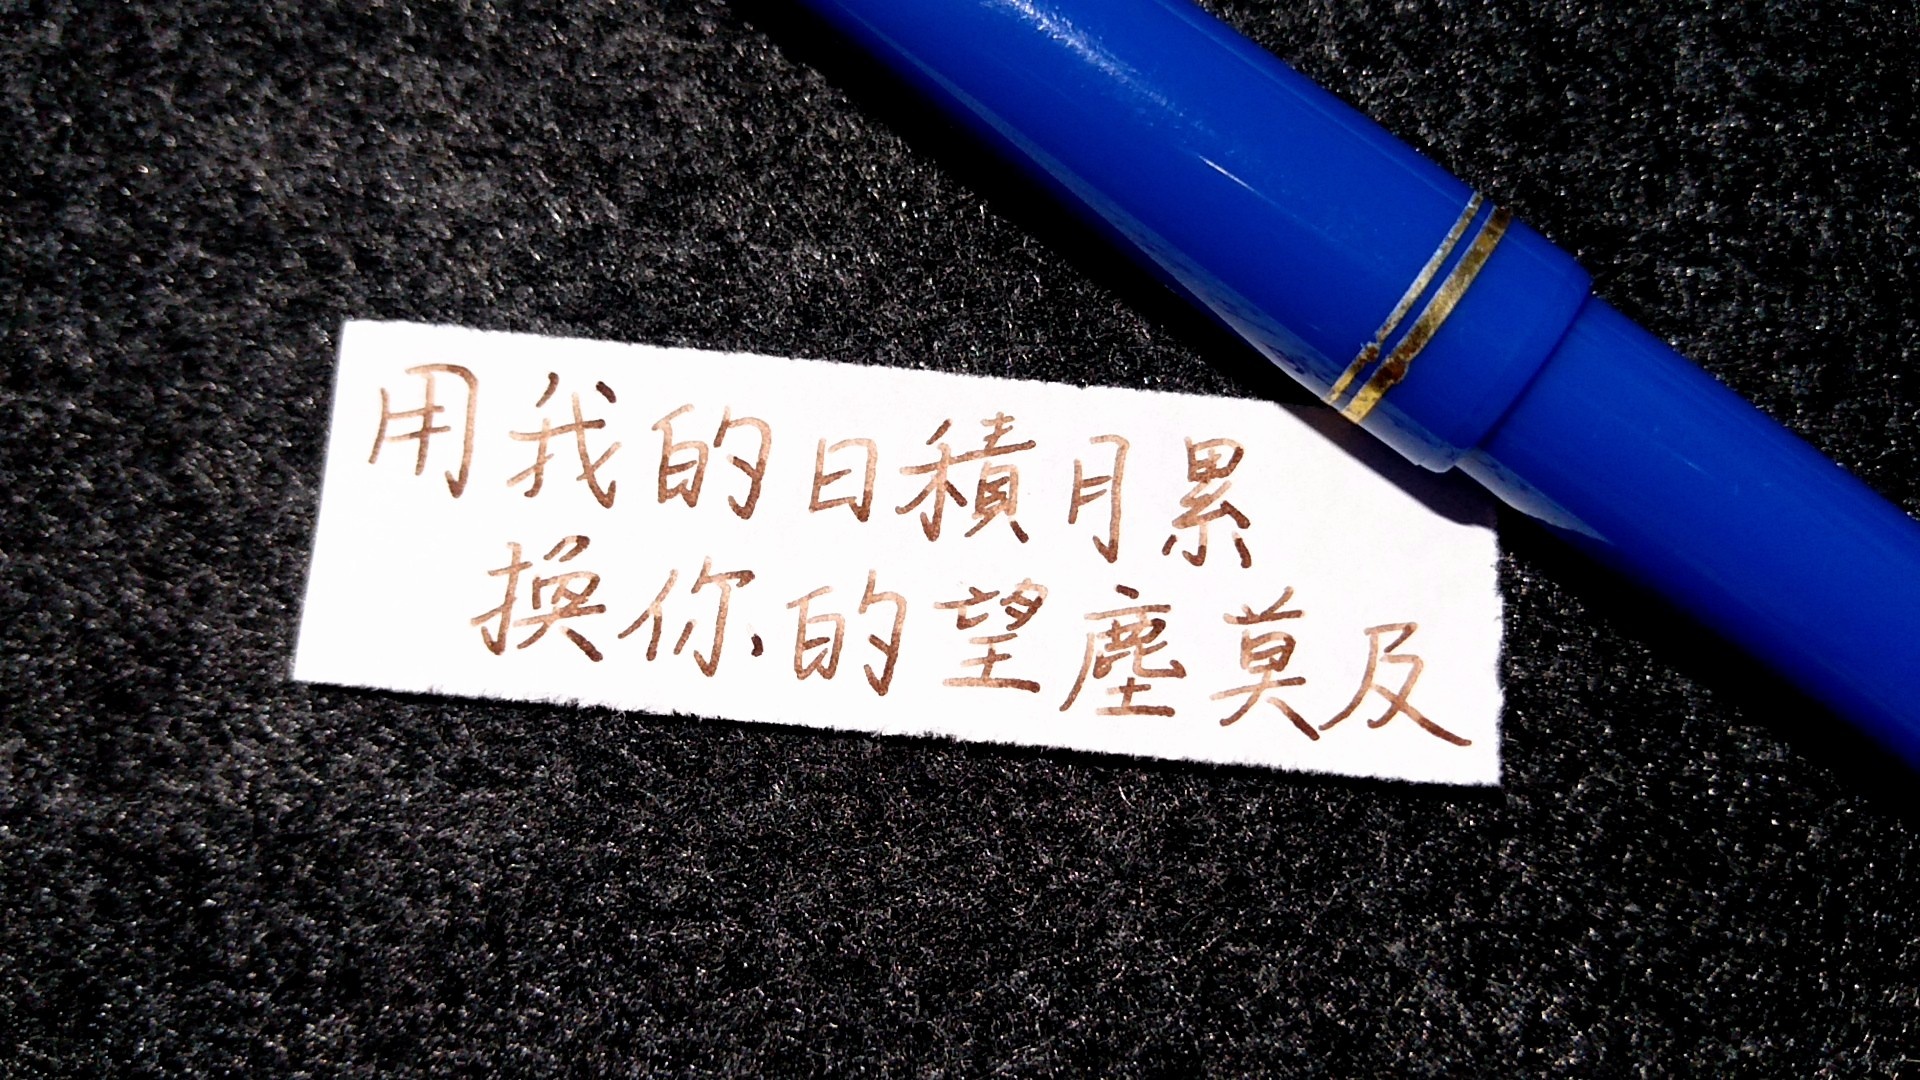 用我的日積月累
換你的望塵莫及